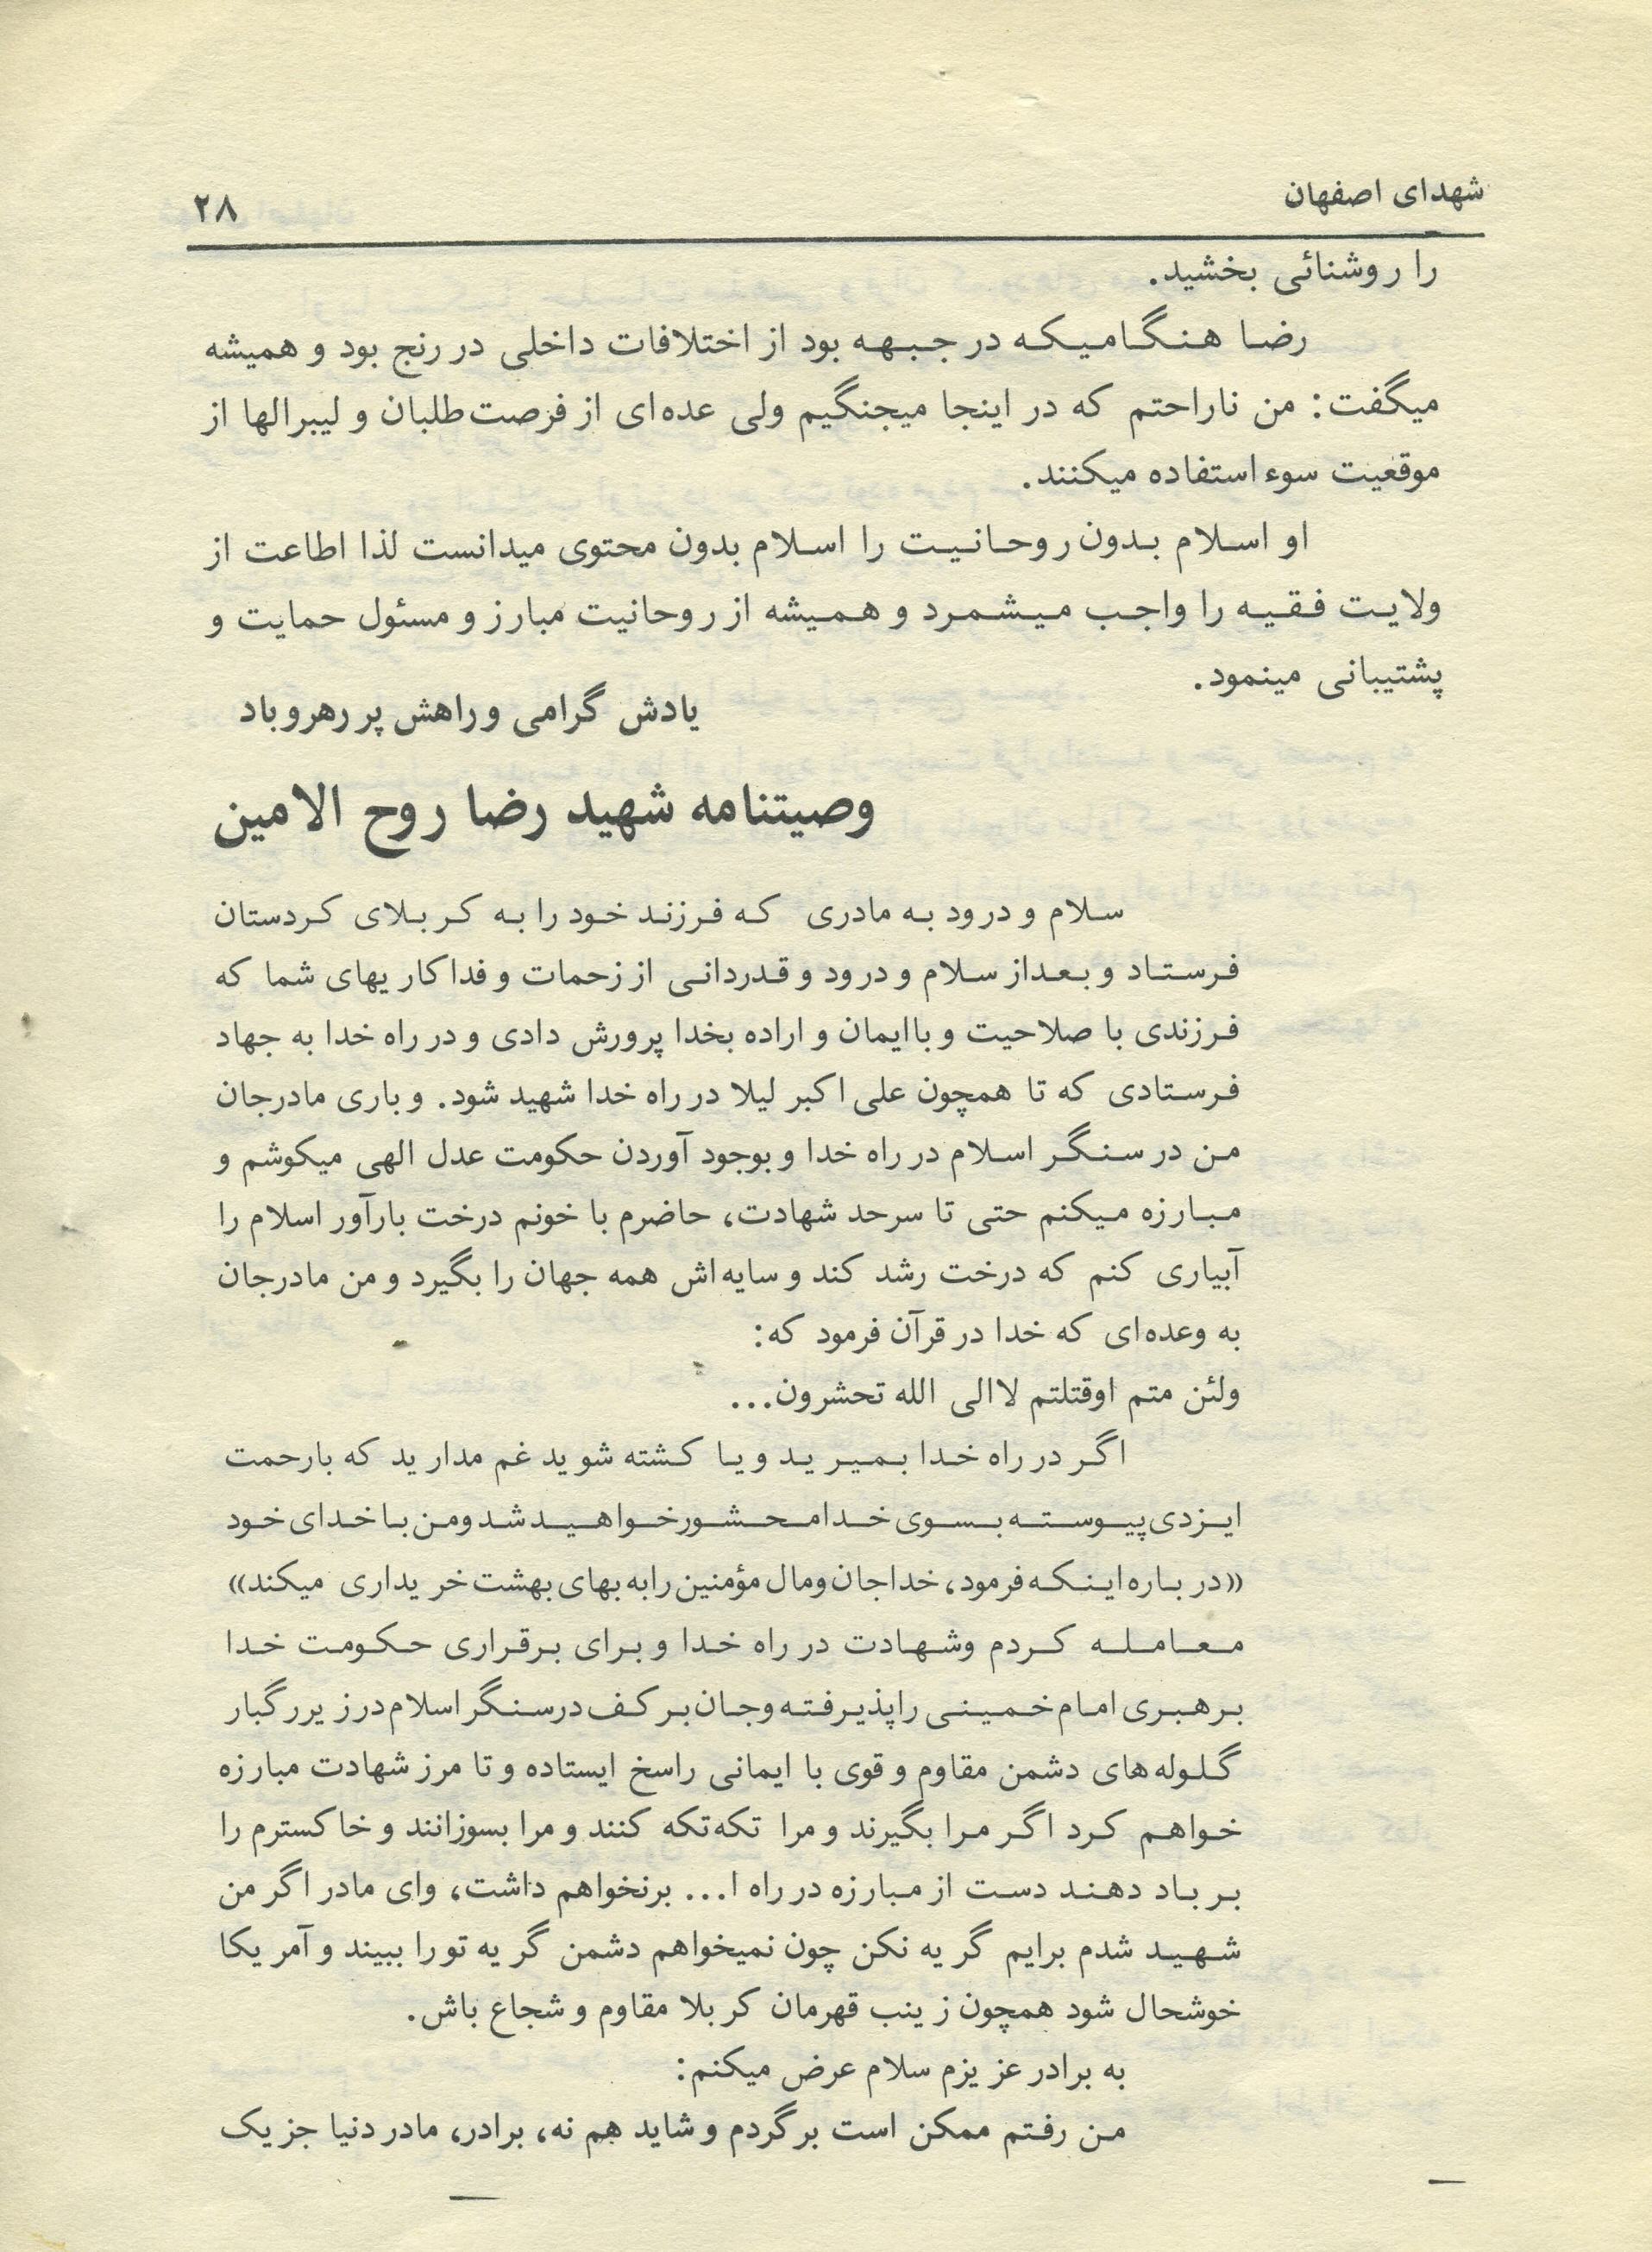 شهدای اصفهان
۲۸
را روشنائی بخشید.
رضا هنگامیکه در جبهه بود از اختلافات داخلی در رنج بود و همیشه
میگفت: من ناراحتم که در اینجا میجنگیم ولی عده‌ای از فرصت‌طلبان و لیبرالها از
موقعیت سوء استفاده میکنند.
او اسلام بدون روحانیت را اسلام بدون محتوی میدانست لذا اطاعت از
ولایت فقیه را واجب میشمرد و همیشه از روحانیت مبارز و مسئول حمایت و
پشتیبانی مینمود.
یادش گرامی و راهش پر رهرو باد
وصیتنامه شهید رضا روح الامین
سلام و درود به مادری که فرزند خود را به کربلای کردستان
فرستاد و بعداز سلام و درود و قدردانی از زحمات و فداکاریهای شما که
فرزندی با صلاحیت و باایمان و اراده بخدا پرورش دادی و در راه خدا به جهاد
فرستادی که تا همچون علی اکبر لیلا در راه خدا شهید شود. و باری مادرجان
من در سنگر اسلام در راه خدا و بوجود آوردن حکومت عدل الهی میکوشم و
مبارزه میکنم حتی تا سرحد شهادت، حاضرم با خونم درخت بارآور اسلام را
آبیاری کنم که درخت رشد کند و سایه‌اش همه جهان را بگیرد و من مادرجان
به وعده‌ای که خدا در قرآن فرمود که:
ولئن متم اوقتلتم لاالی الله تحشرون...
اگر در راه خدا بمیرید و یا کشته شوید غم مدارید که بارحمت
ایزدی پیوسته بسوی خدا محشور خواهید شد و من با خدای خود
«درباره اینکه فرمود، خدا جان و مال مؤمنین را به بهای بهشت خریداری میکند»
معامله کردم وشهادت در راه خدا و برای برقراری حکومت خدا
برهبری امام خمینی را پذیرفته و جان بر کف در سنگر اسلام در زیر رگبار
گلوله‌های دشمن مقاوم و قوی با ایمانی راسخ ایستاده و تا مرز شهادت مبارزه
خواهم کرد اگر مرا بگیرند و مرا تکه‌تکه کنند و مرا بسوزانند و خاکسترم را
بر باد دهند دست از مبارزه در راه ا... برنخواهم داشت، وای مادر اگر من
شهید شدم برایم گریه نکن چون نمیخواهم دشمن گریه تو را ببیند و آمریکا
خوشحال شود همچون زینب قهرمان کربلا مقاوم و شجاع باش.
به برادر عزیزم سلام عرض میکنم:
من رفتم ممکن است برگردم و شاید هم نه، برادر، مادر دنیا جز یک